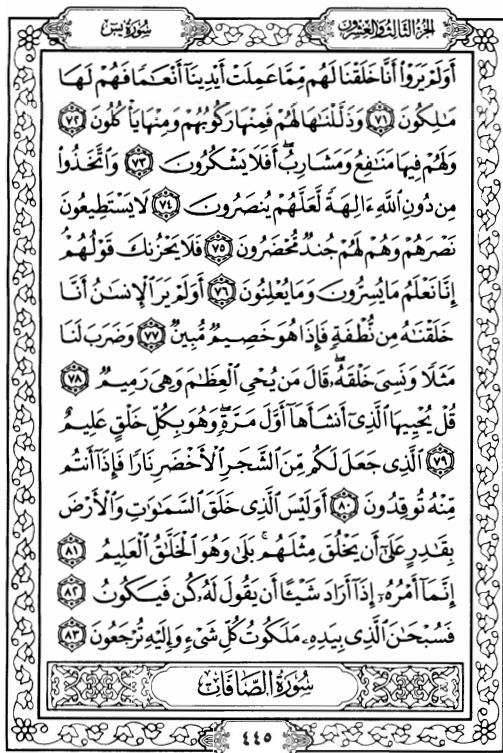 الجزء الثالث والعشرون
سورة يس
أَوَلَمْ يَرَوْا۟ أَنَّا خَلَقْنَا لَهُم مِّمَّا عَمِلَتْ أَيْدِينَآ أَنْعَٰمًا فَهُمْ لَهَا
مَٰلِكُونَ ٧١ وَذَلَّلْنَٰهَا لَهُمْ فَمِنْهَا رَكُوبُهُمْ وَمِنْهَا يَأْكُلُونَ ٧٢
وَلَهُمْ فِيهَا مَنَٰفِعُ وَمَشَارِبُ ۖ أَفَلَا يَشْكُرُونَ ٧٣ وَٱتَّخَذُوا۟
مِن دُونِ ٱللَّهِ ءَالِهَةً لَّعَلَّهُمْ يُنصَرُونَ ٧٤ لَا يَسْتَطِيعُونَ
نَصْرَهُمْ وَهُمْ لَهُمْ جُندٌ مُّحْضَرُونَ ٧٥ فَلَا يَحْزُنكَ قَوْلُهُمْ
إِنَّا نَعْلَمُ مَا يُسِرُّونَ وَمَا يُعْلِنُونَ ٧٦ أَوَلَمْ يَرَ ٱلْإِنسَٰنُ أَنَّا
خَلَقْنَٰهُ مِن نُّطْفَةٍ فَإِذَا هُوَ خَصِيمٌ مُّبِينٌ ٧٧ وَضَرَبَ لَنَا
مَثَلًا وَنَسِىَ خَلْقَهُۥ ۖ قَالَ مَن يُحْىِ ٱلْعِظَٰمَ وَهِىَ رَمِيمٌ ٧٨
قُلْ يُحْيِيهَا ٱلَّذِىٓ أَنشَأَهَآ أَوَّلَ مَرَّةٍ ۖ وَهُوَ بِكُلِّ خَلْقٍ عَلِيمٌ
٧٩ ٱلَّذِى جَعَلَ لَكُم مِّنَ ٱلشَّجَرِ ٱلْأَخْضَرِ نَارًا فَإِذَآ أَنتُم
مِّنْهُ تُوقِدُونَ ٨٠ أَوَلَيْسَ ٱلَّذِى خَلَقَ ٱلسَّمَٰوَٰتِ وَٱلْأَرْضَ
بِقَٰدِرٍ عَلَىٰٓ أَن يَخْلُقَ مِثْلَهُم ۚ بَلَىٰ وَهُوَ ٱلْخَلَّٰقُ ٱلْعَلِيمُ ٨١
إِنَّمَآ أَمْرُهُۥٓ إِذَآ أَرَادَ شَيْـًٔا أَن يَقُولَ لَهُۥ كُن فَيَكُونُ ٨٢
فَسُبْحَٰنَ ٱلَّذِى بِيَدِهِۦ مَلَكُوتُ كُلِّ شَىْءٍ وَإِلَيْهِ تُرْجَعُونَ ٨٣
سُورَةُ الصَّافَّاتِ
٤٤٥